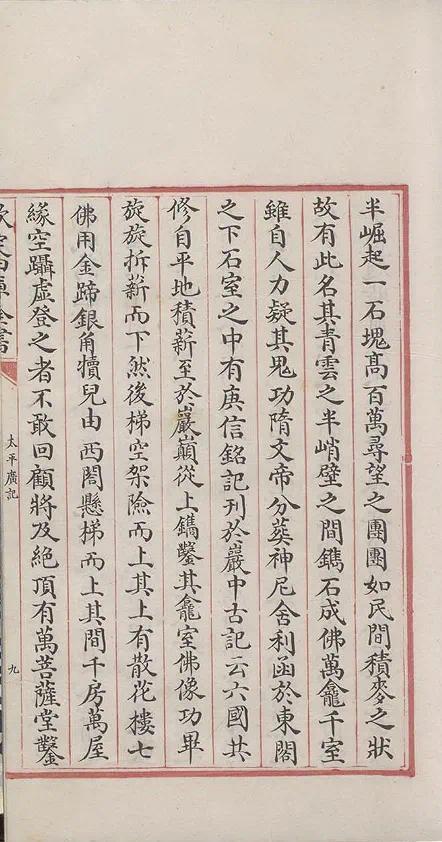 半崛起一石塊髙百萬尋望之團團如民間積麥之狀
故有此名其青雲之半峭壁之間鐫石成佛萬龕千室
雖自人力疑其鬼功隋文帝分葬神尼舍利函於東閣
之下石室之中有庾信銘記刊於巖中古記云六國共
修自平地積薪至於巖巔從上鐫鑿其龕室佛像功畢
旋旋拆薪而下然後梯空架險而上其上有散花樓七
佛用金蹄銀角犢兒由西閣懸梯而上其間千房萬屋
緣空躡虛登之者不敢回顧將及絶頂有萬菩薩堂鑿
欽定四庫全書
太平廣記
九